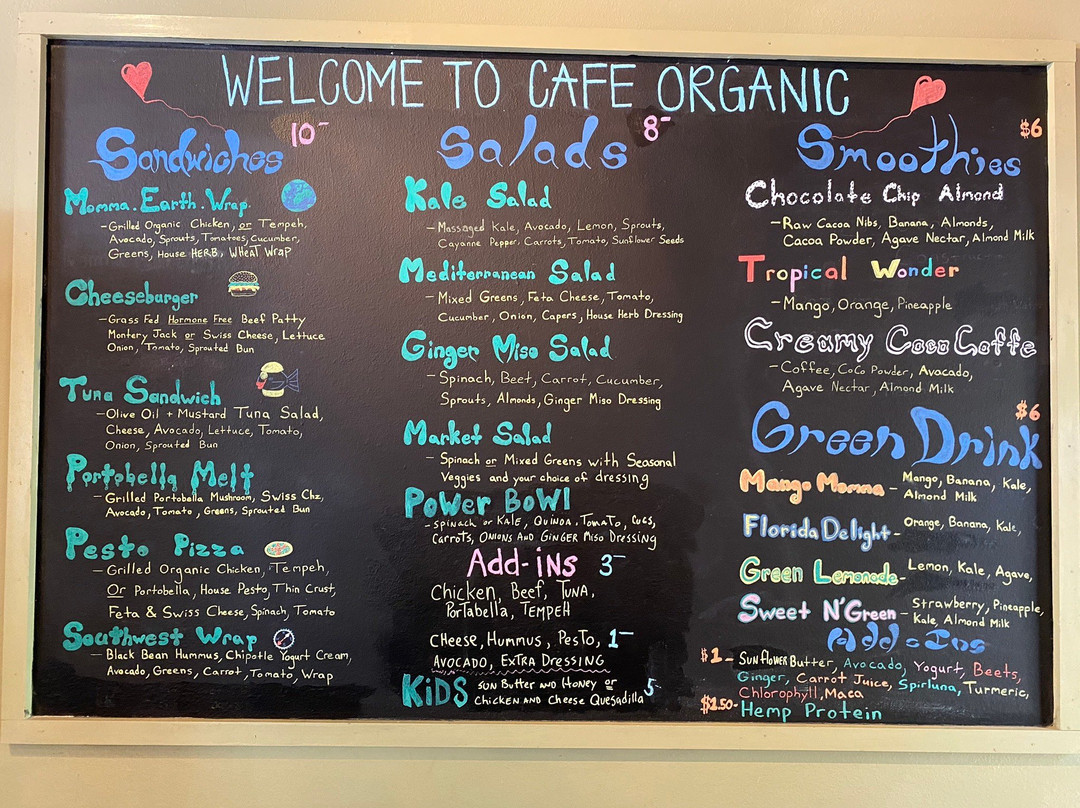 WELCOME TO CAFE ORGANIC
Sandwiches 10-
Momma.Earth.Wrap.
-Grilled Organic Chicken, or Tempeh,
Avocado, Sprouts, Tomatoes, Cucumber,
Greens, House HERB, WHEAT WRAP
Cheeseburger
-Grass Fed Hormone Free Beef Patty
Montery Jack or Swiss Cheese, Lettuce
Onion, Tomato, Sprouted Bun
Tuna Sandwich
-Olive Oil + Mustard Tuna Salad,
Cheese, Avocado, Lettuce, Tomato,
Onion, Sprouted Bun
Portobella Melt
-Grilled Portobella Mushroom, Swiss Chz,
Avocado, Tomato, Greens, Sprouted Bun
Pesto Pizza
-Grilled Organic Chicken, Tempeh,
Or Portobella, House Pesto, Thin Crust,
Feta & Swiss Cheese, Spinach, Tomato
Southwest Wrap
-Black Bean Hummus, Chipotle Yogurt Cream,
Avocado, Greens, Carrot, Tomato, Wrap
Salads 8-
Kale Salad
-Massaged Kale, Avocado, Lemon, Sprouts,
Cayanne Pepper, Carrots, Tomato, Sunflower Seeds
Mediterranean Salad
-Mixed Greens, Feta Cheese, Tomato,
Cucumber, Onion, Capers, House Herb Dressing
Ginger Miso Salad
-Spinach, Beet, Carrot, Cucumber,
Sprouts, Almonds, Ginger Miso Dressing
Market Salad
-Spinach or Mixed Greens with Seasonal
Veggies and your choice of dressing
POWER BOWl
-SPINACH or KALE, QUINOA, TOMATO, CUCS,
CARROTS, ONIONS AND GINGER MISO DRESSING
Add-iNS 3-
Chicken, Beef, TUNA,
Portabella, TEMPEH
CHEESE, HUMMUS, PESTO, 1-
AVOCADO, EXTRA DRESSING
KiDS SUN BUTTER AND HONEY or 5-
CHICKEN AND CHEESE QUESADILLA
Smoothies $6
Chocolate Chip Almond
-Raw Cacoa Nibs, Banana, Almonds,
Cacoa Powder, Agave Nectar, Almond Milk
Tropical Wonder
-Mango, Orange, Pineapple
Creamy Coco Coffe
-Coffee, CoCo Powder, Avocado,
Agave Nectar, Almond Milk
Green Drink $6
Mango Momma - Mango, Banana, Kale,
Almond Milk
Florida Delight - Orange, Banana, Kale,
Green Lemonade - Lemon, Kale, Agave,
Sweet N'Green - Strawberry, Pineapple,
Kale, Almond Milk
Add-Ins
$1- SUNflOWER Butter, Avocado, Yogurt, Beets,
Ginger, Carrot Juice, Spirluna, Turmeric,
Chlorophyll, Maca
$1.50- Hemp Protein